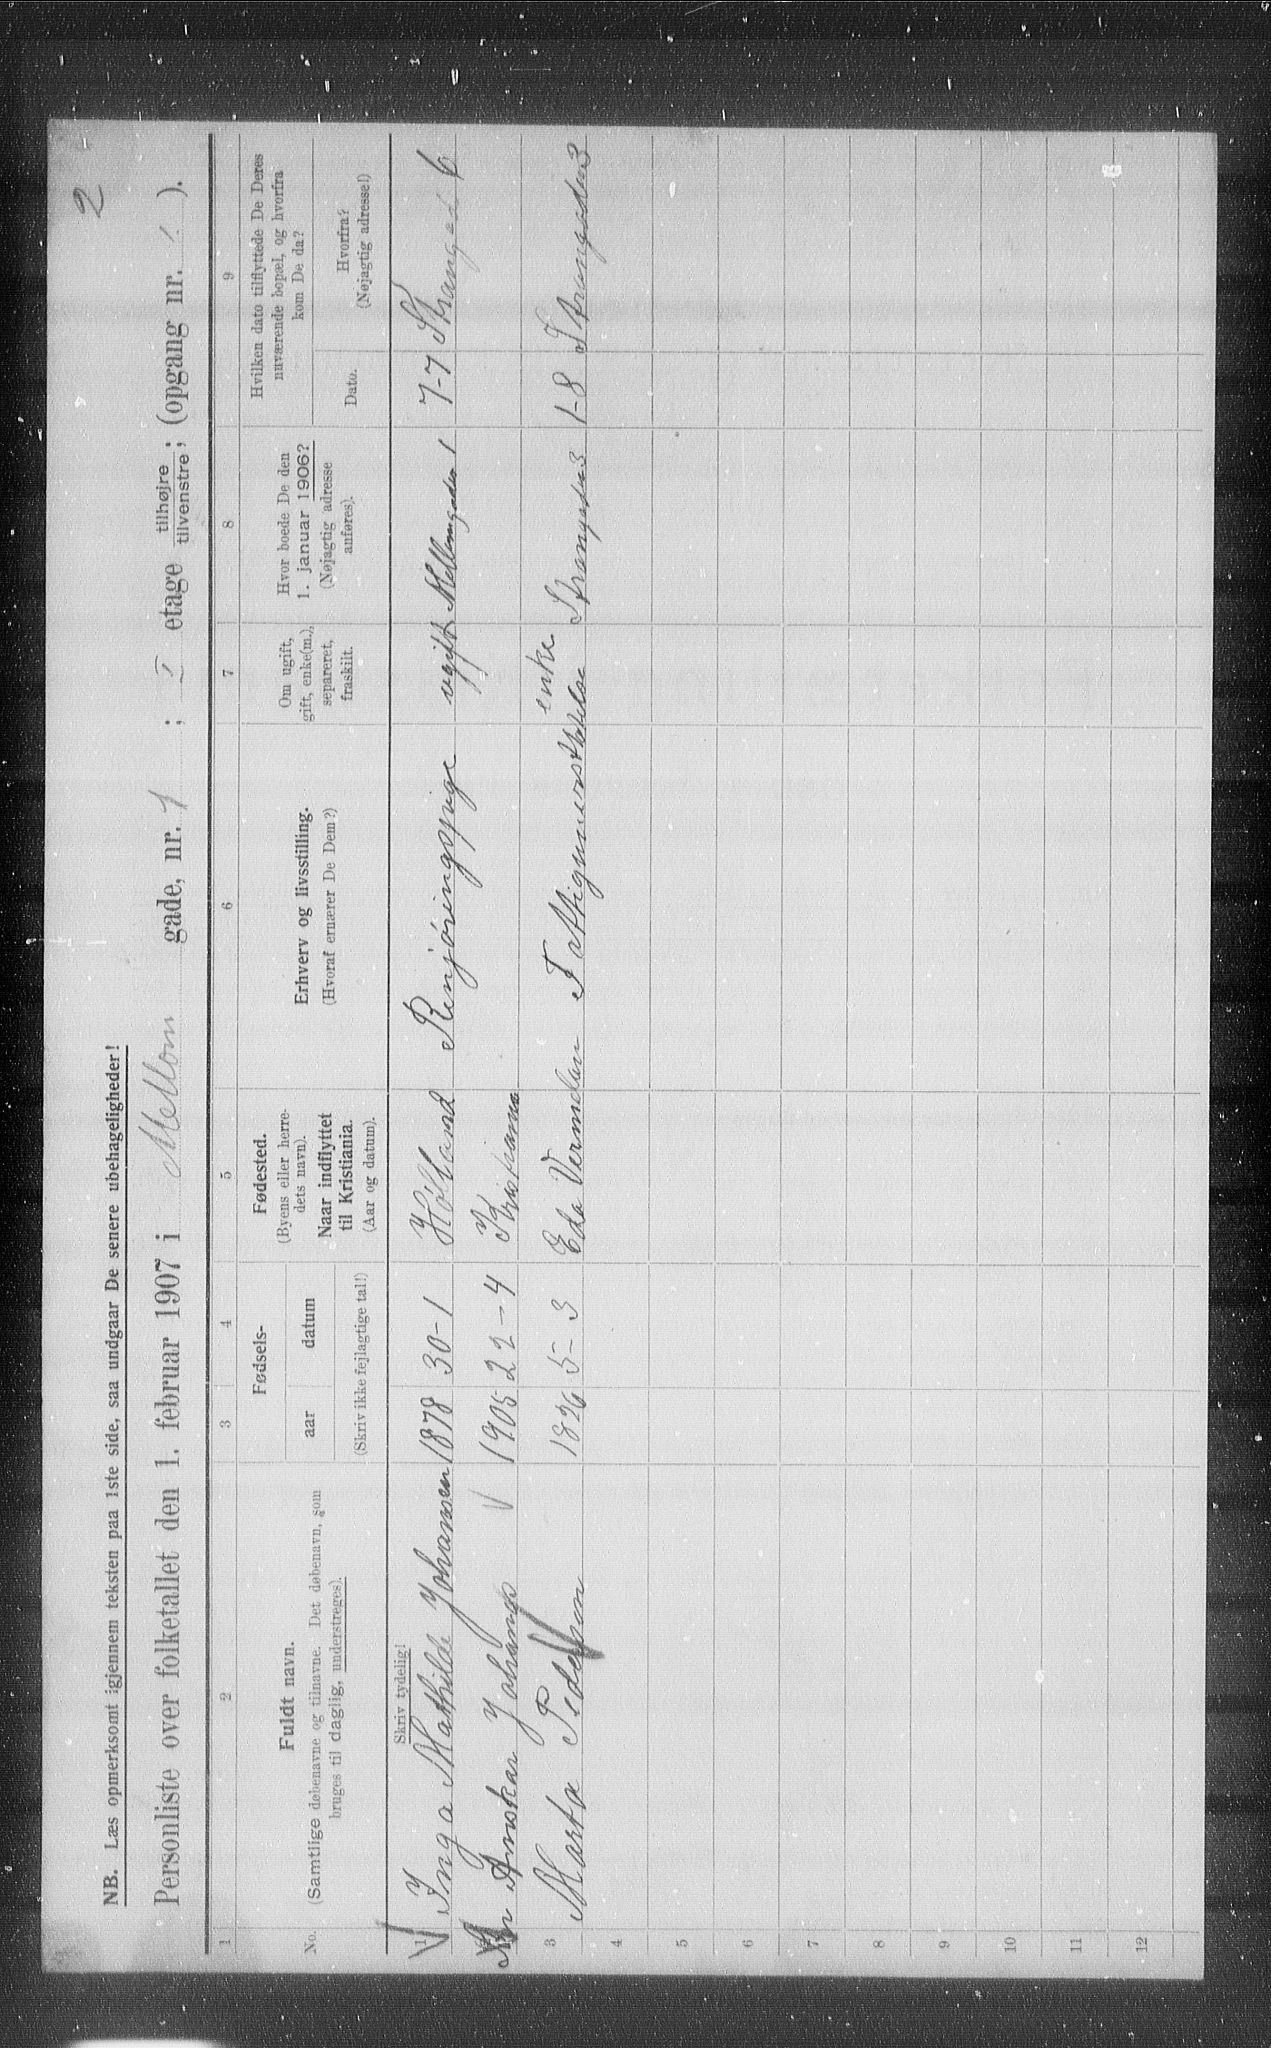 2
NB. Læs opmerksomt igjennem teksten paa 1ste side, saa undgaar De senere ubehageligheder!
Personliste over folketallet den 1. februar 1907 i Mellom gade, nr. 1 ; I etage tilhøjre tilvenstre; (opgang nr. 1 ).
1 2 3 4 5 6 7 8 9
No.
Fuldt navn.
(Samtlige døbenavne og tilnavne. Det døbenavn, som
bruges til daglig, understreges).
Fødsels-
aar datum
(Skriv ikke fejlagtige tal!)
Fødested.
(Byens eller herre-
dets navn).
Naar indflyttet
til Kristiania.
(Aar og datum).
Erhverv og livsstilling.
(Hvoraf ernærer De Dem?)
Om ugift,
gift, enke(m.),
separeret,
fraskilt.
Hvor boede De den
1. januar 1906?
(Nøjagtig adresse
anføres).
Hvilken dato tilflyttede De Deres
nuværende bopæl, og hvorfra
kom De da?
Dato.
Hvorfra?
(Nøjagtig adresse!)
Skriv tydelig!
1 Inga Mathilde Johansen 1878 30-1 Høland Renjøringspige ugift Mellemgaden 1 7-7 Strangad 6
Johans 1905 22-4 Kristiania
3 Marta Pederson 1826 5-3 Eda Vermelan enke Strangaden 3 1-8 Strangaden 3
4
5
6
7
8
9
10
11
12